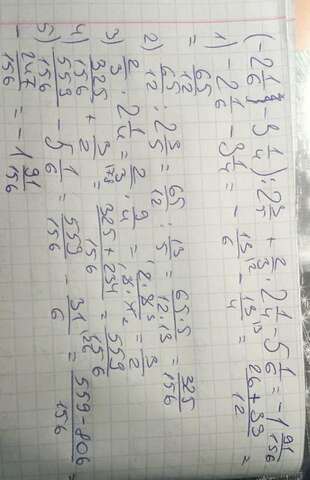 (-2 1/6 - 3 1/4) : 2 3/5 + 2/3 · 2 1/4 - 5 1/6 = -1 91/156
1) -2 1/6 - 3 1/4 = - 13/6 - 13/4 = (26+39)/12 =
= 65/12
2) 65/12 : 2 3/5 = 65/12 : 13/5 = (65·5)/(12·13) = 325/156
3) 2/3 · 2 1/4 = 2/3 · 9/4 = 3/2
4) 325/156 + 3/2 = (325+234)/156 = 559/156
5) 559/156 - 5 1/6 = 559/156 - 31/6 = (559-806)/156 =
- 247/156 = -1 91/156